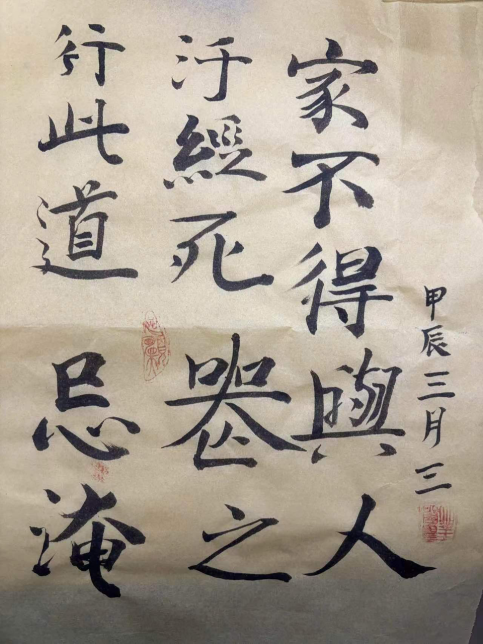 行此道忌淹
汙經死喪之
家不得與人
甲辰三月三